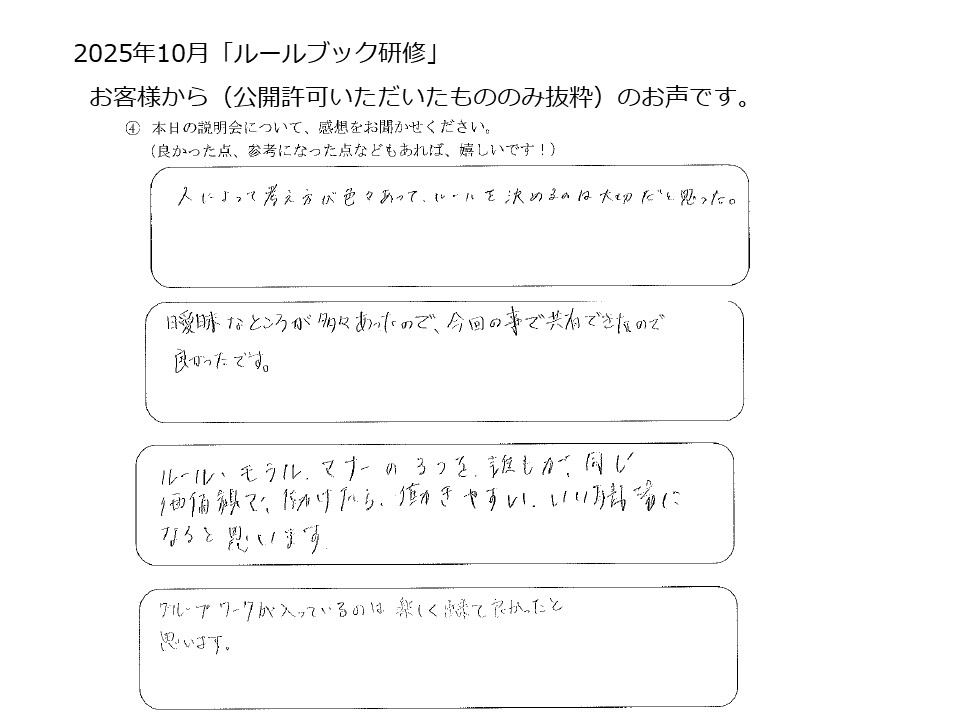 2025年10月「ルールブック研修」
お客様から（公開許可いただいたもののみ抜粋）のお声です。
④ 本日の説明会について、感想をお聞かせください。
（良かった点、参考になった点などもあれば、嬉しいです！）
人によって考え方が色々あって、ルールを決めるのは大切だと思った。
曖昧なところが多々あったので、今回の事で共有できたので
良かったです。
ルール、モラル、マナーの3つを、誰もが、同じ
価値観で、働けたら、働きやすい、いい職場に
なると思います。
グループワークが入っているのは楽しく出来て良かったと
思います。